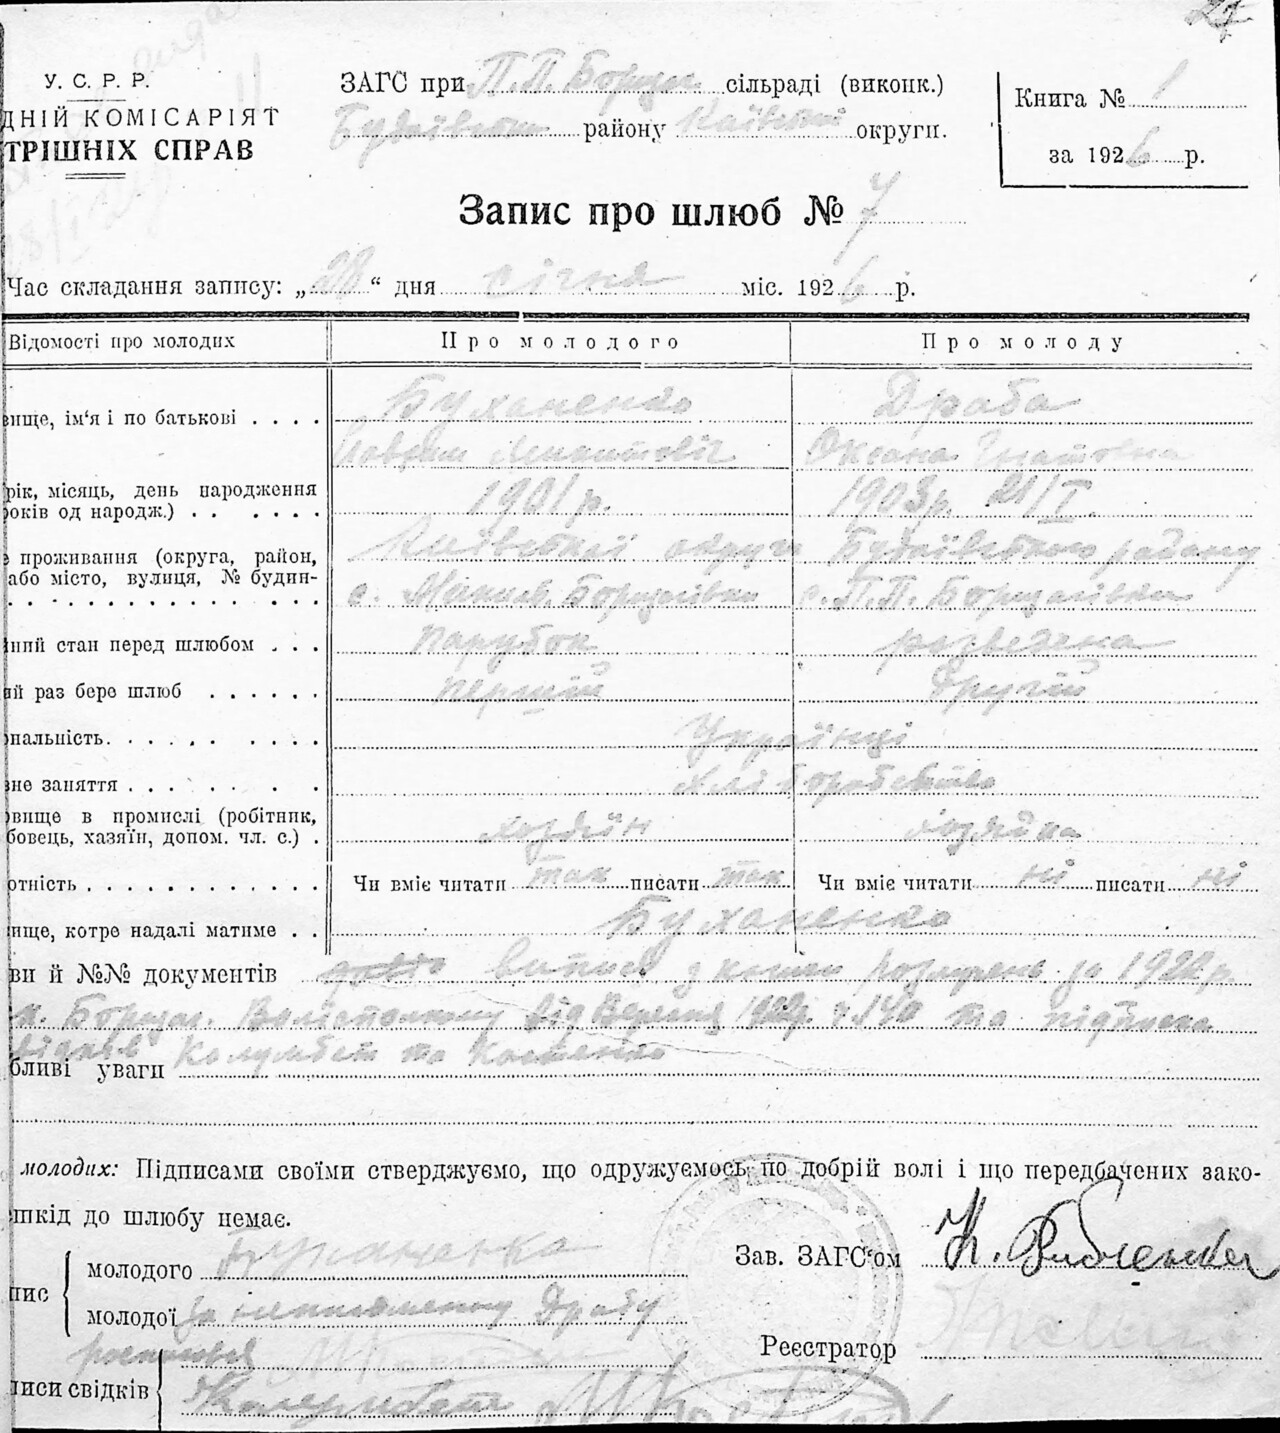 27
У. С. Р. Р.
ДНІЙ КОМІСАРІЯТ
ТРІШНІХ СПРАВ
ЗАГС при П.П. Борщаг. сільраді (виконк.)
Будаївського району Київської округи.
Книга № 1
за 1926 р.
Запис про шлюб № 7
Час складання запису: „28“ дня січня міс. 1926 р.
Відомості про молодих
Про молодого
Про молоду
вище, ім'я і по батькові . . . .
Буханенко
Драба
Микитовіч
Оксана Гнатовна
рік, місяць, день народження
років од народж.) . . . . . .
1901 р.
1903р. 21/I.
е проживання (округа, район,
або місто, вулиця, № будин-
Київської округи Будаївського району
с. Микіль. Борщагівка
с. П.П. Борщагівка
ний стан перед шлюбом . . .
парубок
розведена
ий раз бере шлюб . . . . . .
перший
другій
ональність. . . . . . . . . .
Українці
вне заняття . . . . . . . .
хліборобство
овище в промислі (робітник,
бовець, хазяїн, допом. чл. с.) .
хозяїн
хозяйка
отність . . . . . . . . . . . .
Чи вміє читати так писати так
Чи вміє читати ні писати ні
вище, котре надалі матиме . .
Буханенко
ви й №№ документів
випис з книги розлучень за 1922 р.
Борщаг. Волісполкому від Вересня 1922р. ч. 140 та підписка
свідків Колумбет та Костенко
бливі уваги
молодих: Підписами своїми стверджуємо, що одружуємось по добрій волі і що передбачених зако-
шкід до шлюбу немає.
пис
молодого Буханенко
молодої За неписьменну Драбу
росписався
Зав. ЗАГС'ом
Реєстратор
писи свідків
Колумбет